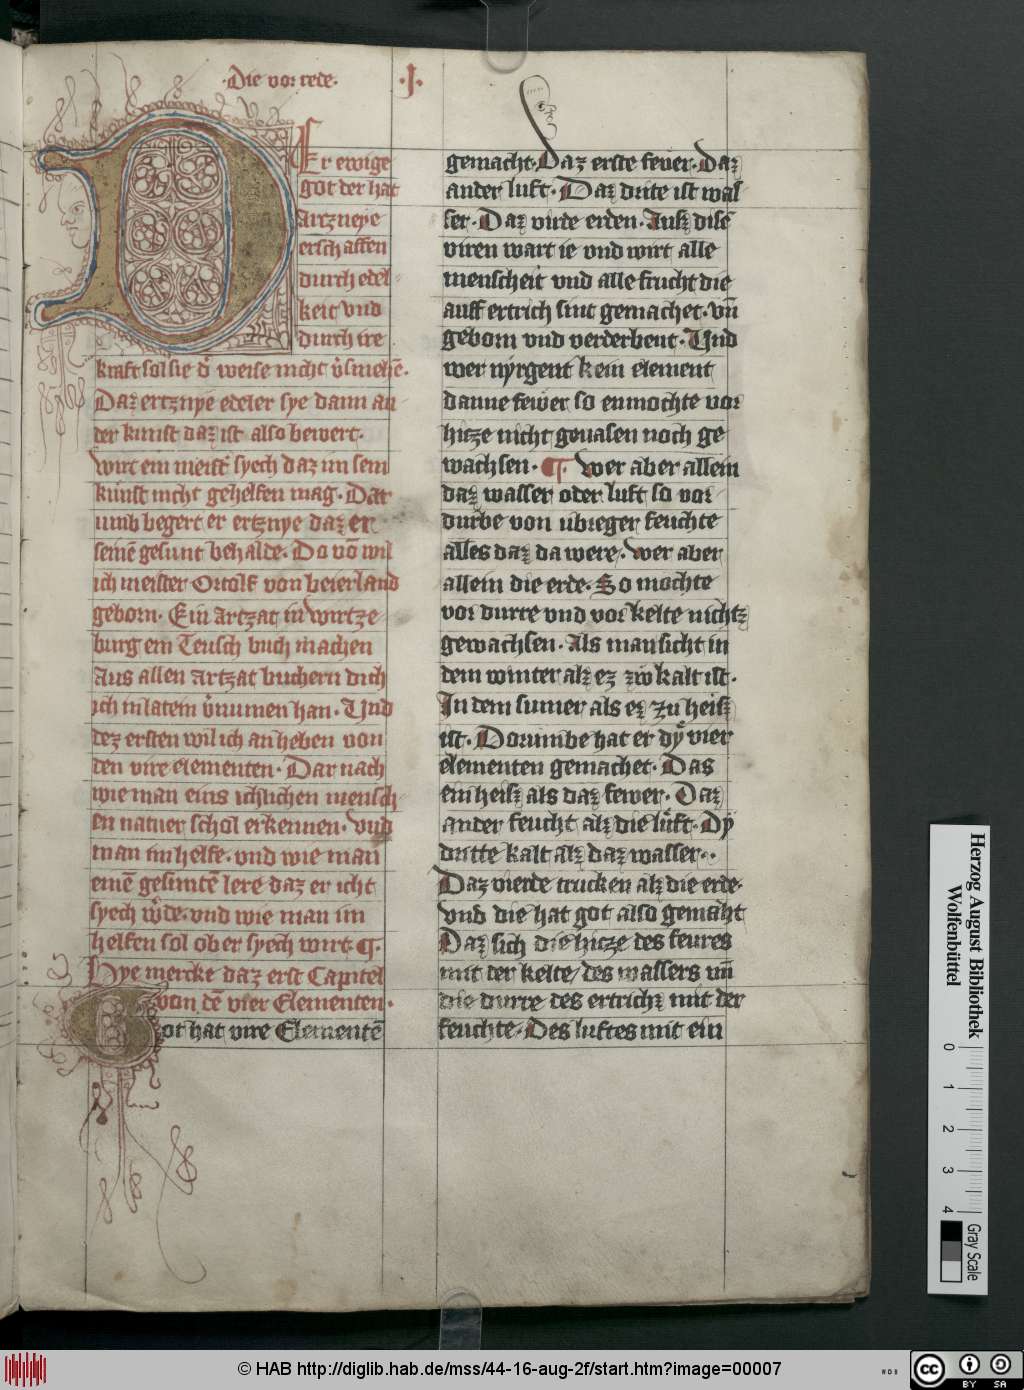 ·Die vor rede·
·I·
Er ewige
got der hat
Artzneye
erschaffen
durch edel
keit vnd
durch ire
kraft sol sie d̾ weise nicht v̾smehē·
Daz ertznye edeler sye dann an
der kunst daz ist also bewert·
wirt ein meist̾ syech daz im sein
kunst nicht gehelfen mag· Dar
umb begert er ertznye daz er
seinē gesunt behalde· Do võ wil
ich meister Ortolf von beierland
geborn· Ein Artzat in wirtze
burg ein Teusch buch machen
Aus allen artzat buchern dich
ich in latein v̾numen han· Und
dez ersten wil ich an heben von
den vire elementen· Dar nach
wie man eins ichlichen mensch
en natuer schol erkennen· vnd
man im helfe· vnd wie man
einē gesuntē lere daz er icht
syech w̾de· vnd wie man im
helfen sol ober syech wirt· ¶·
Hye mercke daz erst Capitel
von dē vier Elementen·
Got hat vire Elementē
gemacht· Daz erste fever· Daz
ander luft· Daz drite ist was
ser· Daz virde erden· Ausz disē
viren wart ie vnd wirt alle
menscheit vnd alle frucht die
auff ertrich sint gemachet· vñ
geborn vnd verderbent· Und
wer nyrgent kein element
danne fewer so enmochte vor
hicze nicht gewasen noch ge
wachsen· ¶· wer aber allein
daz wasser oder luft so vor
durbe von ubrieger feuchte
alles daz da were· wer aber
allein die erde· So mochte
vor durre vnd vor kelte nichtz
gewachsen· Als man sicht in
dem winter alz ez zw kalt ist·
In dem sumer als ez zu heisz
ist· Dorumbe hat er dy vier
elementen gemachet· Das
ein heisz als daz fewer· Daz
ander feucht alz die luft· Dy
dritte kalt alz daz wasser··
Daz vierde trucken alz die erde·
vnd die hat got also gemaht
Daz sich die hicze des feures
mit der kelte, des wassers vñ
die durre des ertrichz mit der
feuchte· Des luftes mit ein
Herzog August Bibliothek
Wolfenbüttel
0 1 2 3 4
Gray Scale
© HAB http://diglib.hab.de/mss/44-16-aug-2f/start.htm?image=00007
WDB
cc BY SA